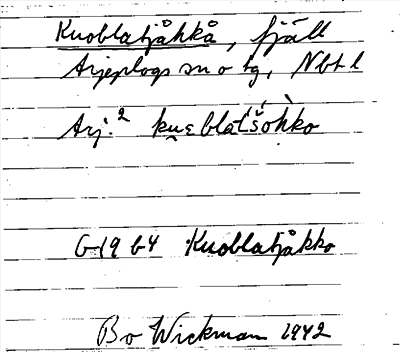 Kuoblatjåhkå, fjäll
Arjeplogs sn o tg, Nbt l
Arj.² ku̯ɛblat́šòhko
G 19 64 Kuoblatjåkko
Bo Wickman 1942